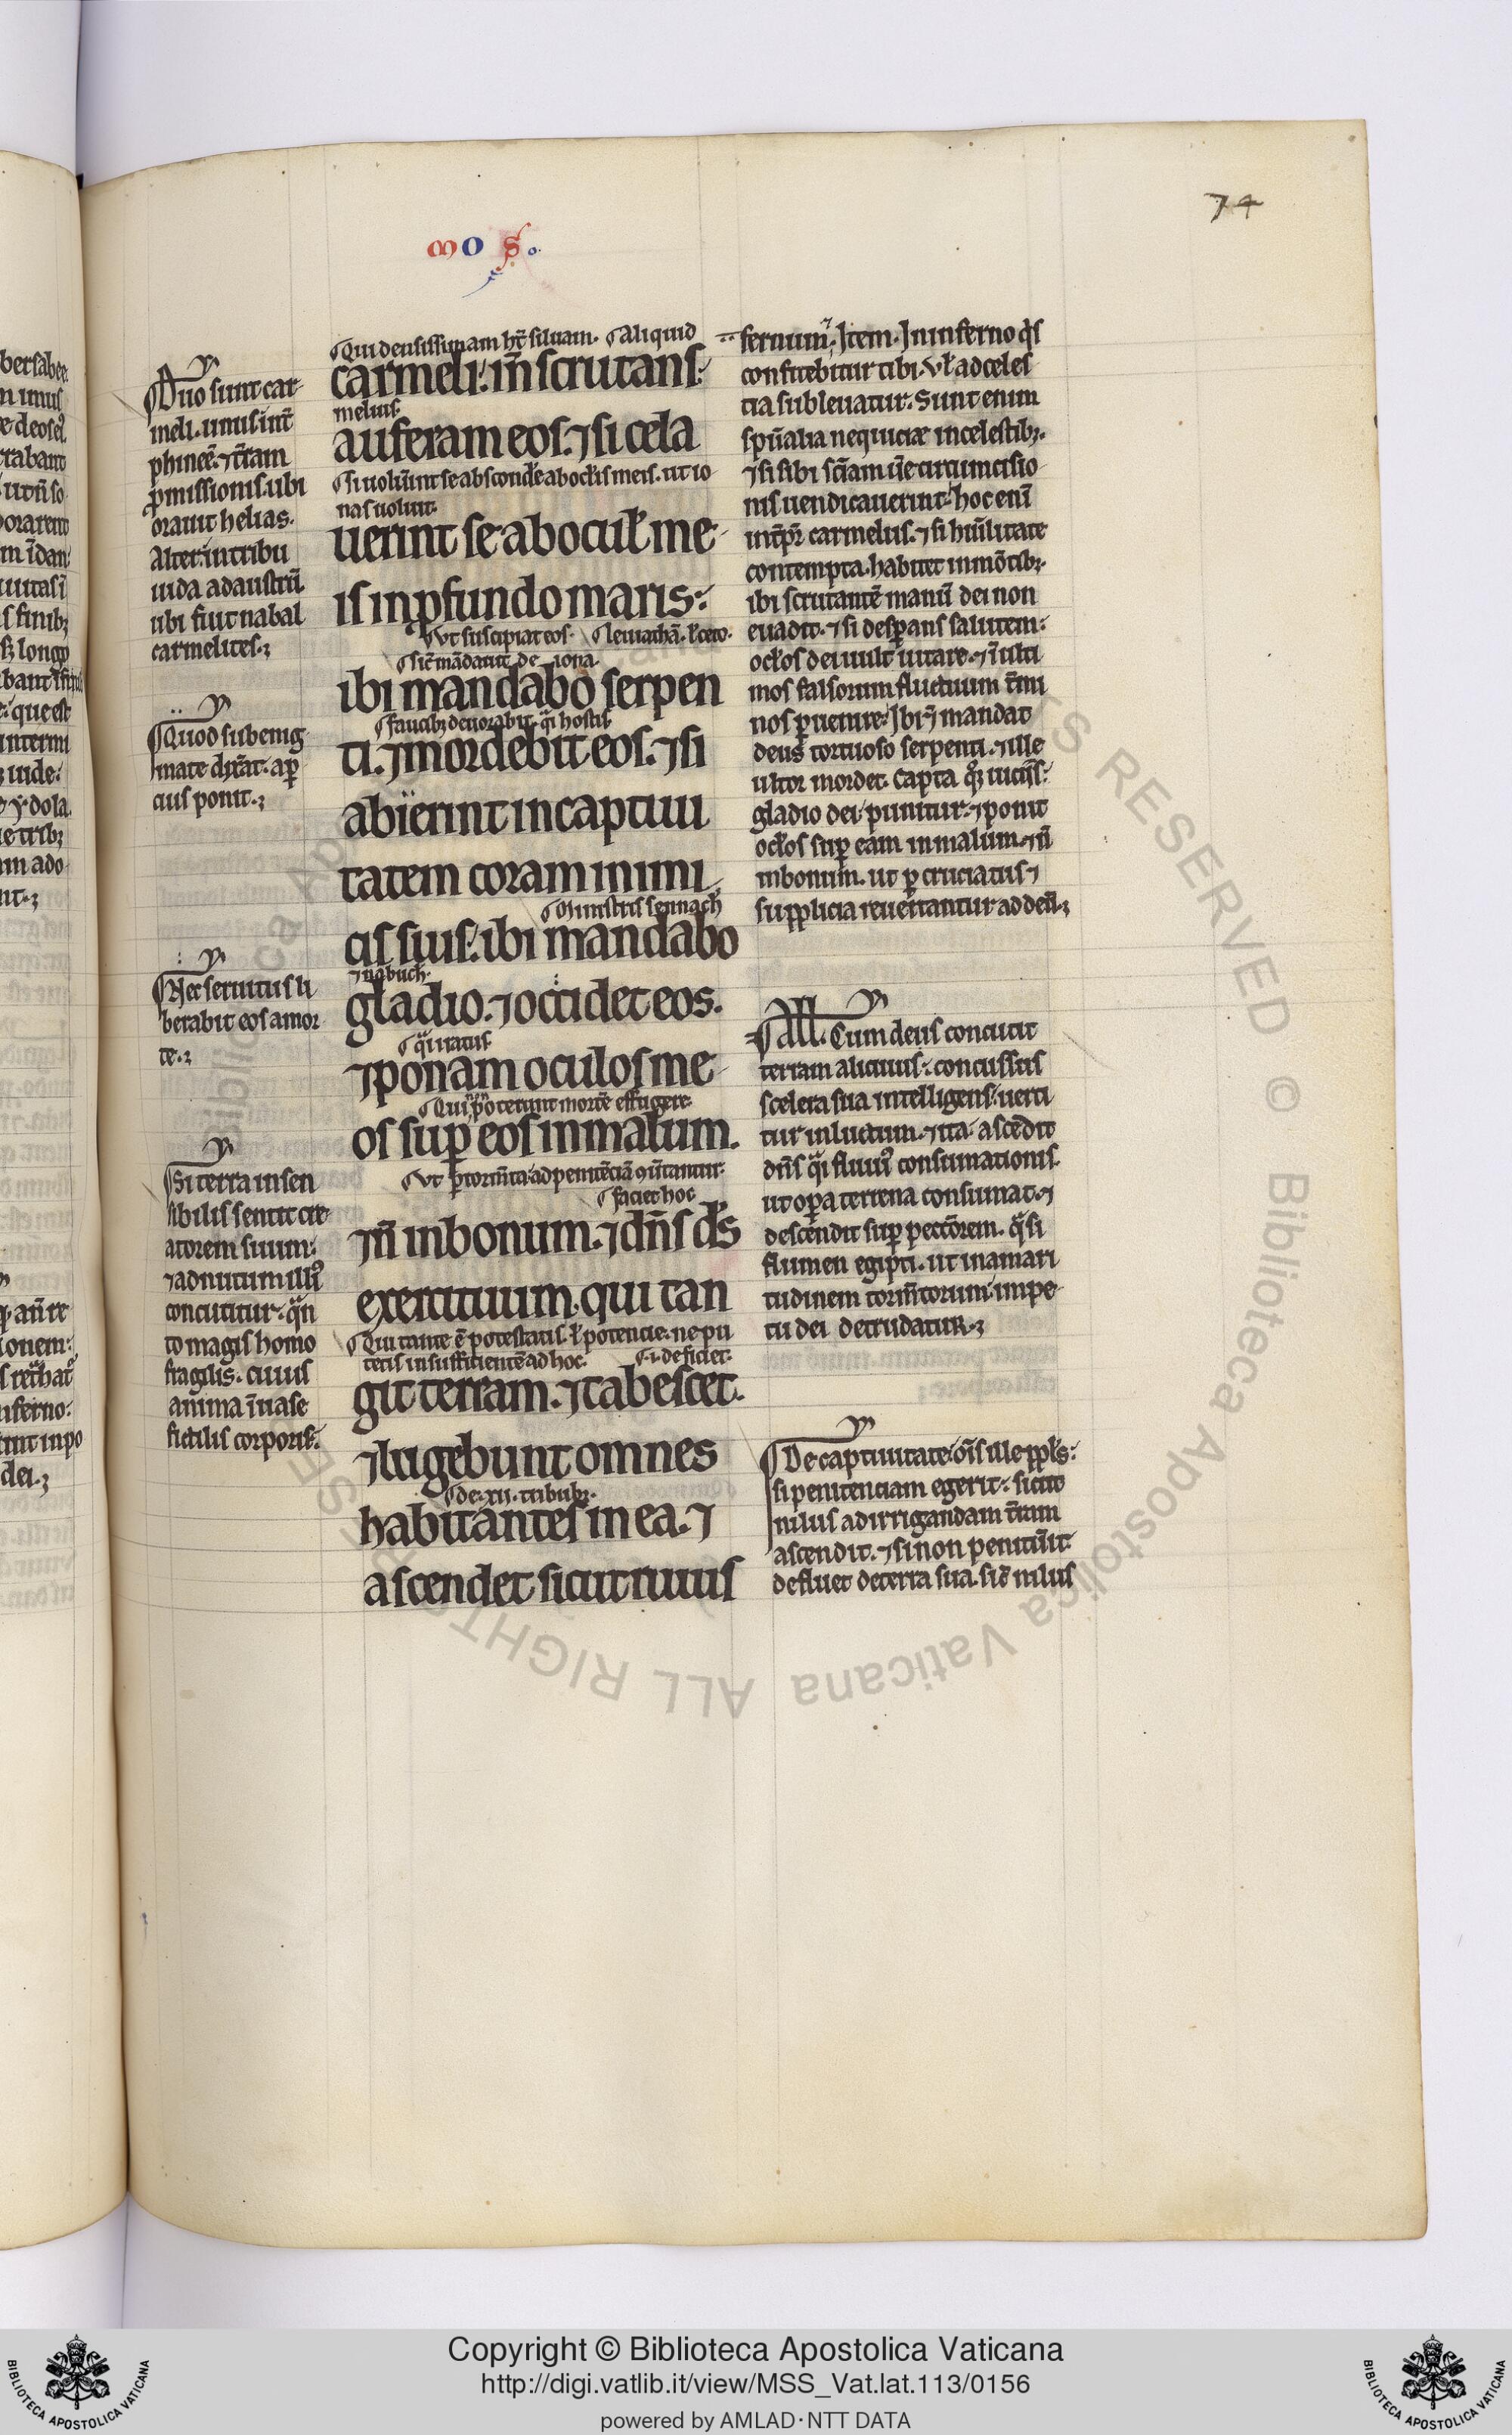 74
mo S o.
y
Duo sunt car
meli. unus int̄
phineē. ⁊ t̄ram
ꝓmissionis. ubi
orauit helias.
Alter. in tribu
iuda ad austrū.
ubi fuit nabal
carmelites.
y
Quod sub enig
mate dix̄at. ap
cius ponit.
y
Nec seruitus li
berabit eos a mor
te.
y
Si terra insen
sibilis sentit cre
atorem suum:
⁊ ad nutum illiꝰ
concutitur. qᵃn
to magis homo
fragilis. cuius
anima ī uase
fictilis corporis.
Qui densissimam ht̄ siluam. Aliquid
carmeli: in̄ scrutans.
melius.
auferam eos. ⁊ si cela
Si uolūint se abscondere ab oclis meis. ut io
nas uoluit.
uerint se ab ocul me
is in ꝓfundo maris:
Vt suscipiat eos. leuiathā. ł ceto.
sic̄ mādauit de iona.
ibi mandabo serpen
faucibꝫ deuorabit. qᵃi hostis
ti. ⁊ mordebit eos. ⁊ si
abierint in captiui
tatem coram inimi
Ministris sennach
cis suis: ibi mandabo
⁊ nabuch.
gladio. ⁊ occidet eos.
qᵃ iratus
⁊ ponam oculos me
Qui n̄ poterunt mortē effugere.
os suꝑ eos in malum.
Vt ꝑ torm̄ta ad penitēciā ꝯūtantur.
faciet hoc
⁊ n̄ in bonum. ⁊ dn̄s ds
exercituum. qui tan
Qui tante ē potestatis. ł potencie. ne pu
tetis insufficientē ad hoc. .i. deficiet.
git terram. ⁊ tabescet.
⁊ lugebunt omnes
de. xii. tribubꝫ.
habitantes in ea. ⁊
ascendet sicut riuus
fernum. Item. In inferno qis
confitebitur tibi. vł ad celes
tia subleuatur. Sunt enim
spūalia nequicie in celestibꝫ.
⁊ si sibi sc̄iam ūe circumcisio
nis uendicauerint: hoc enī
intꝑr carmelus. ⁊ si hūilitate
contempta. habitet in mōtibꝫ.
ibi scrutantē manū dei non
euadit. ⁊ si desꝑans salutem:
oclos dei uult uitare. ⁊ ī ulti
mos falsorum fluctuum t̄mi
nos ꝑuenire: Ibi ⁊ mandat
deus tortuoso serpenti. ⁊ ille
ultor mordet. Capta
gladio dei punitur. ⁊ ponit
oclos suꝑ eam in malum. ⁊ n̄
in bonum. ut ꝑ cruciatus ⁊
supplicia reuertantur ad deū.
y
All. Cum deus concutit
terram alicuius: concussus
scelera sua intelligens: uerti
tur in luctum. ⁊ ita ascēdit
dn̄s qᵃi fluuiꝰ consumationis.
ut opera terrena consumat. ⁊
descendit suꝑ peccōrem. qᵃsi
flumen egipti. ut in amari
tudinem torm̄torum impe
tu dei detrudatur.
y
De captiuitate. oīs ille ppls:
si penitenciam egerit: sicut
nilus ad irrigandam t̄ram
ascendit. ⁊ si non penitūit
defluet de terra sua. sic̄ nilus
Copyright © Biblioteca Apostolica Vaticana
http://digi.vatlib.it/view/MSS_Vat.lat.113/0156
powered by AMLAD·NTT DATA
BIBLIOTECA APOSTOLICA VATICANA
BIBLIOTECA APOSTOLICA VATICANA
© Biblioteca Apostolica Vaticana ALL RIGHTS RESERVED